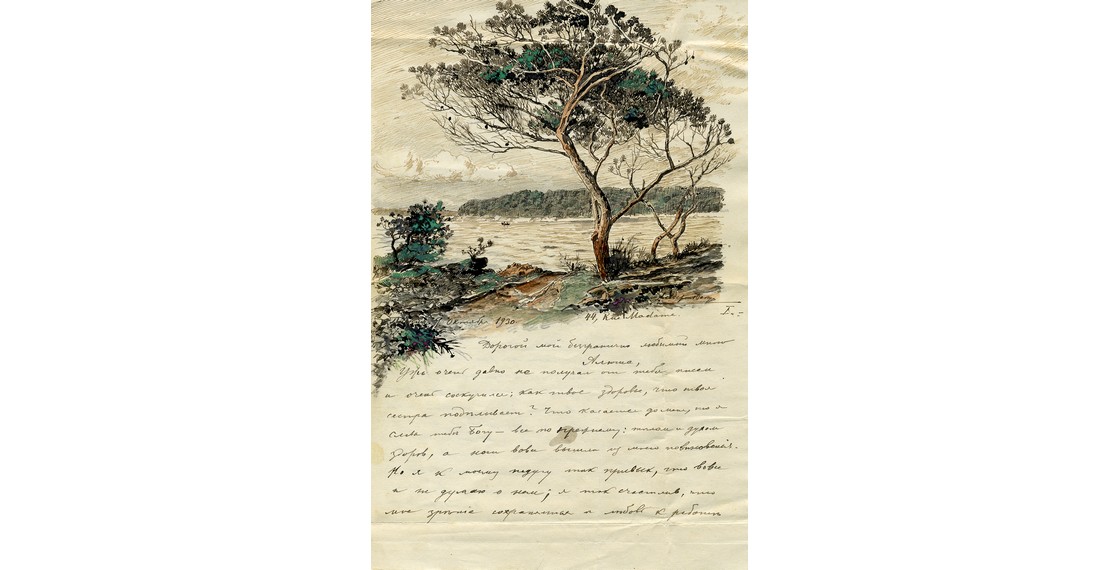 Октябрь 1930 44, Rue Madame. I.
Дорогой мой безгранично любимый мною
Алеша,
Ужъ очень давно не получал от тебя писем
и очень соскучился: как твое здоровье, что твоя
сестра поделывает? Что касается до меня, то я
слава тебе Богу — все по прежнему: телом и духом
здоров, а ноги вовсе вышли из моего повиновения.
Но я к моему недугу так привык, что вовсе
и не думаю о нем; я так счастлив, что
мое зрение сохранилось и любовь к работе